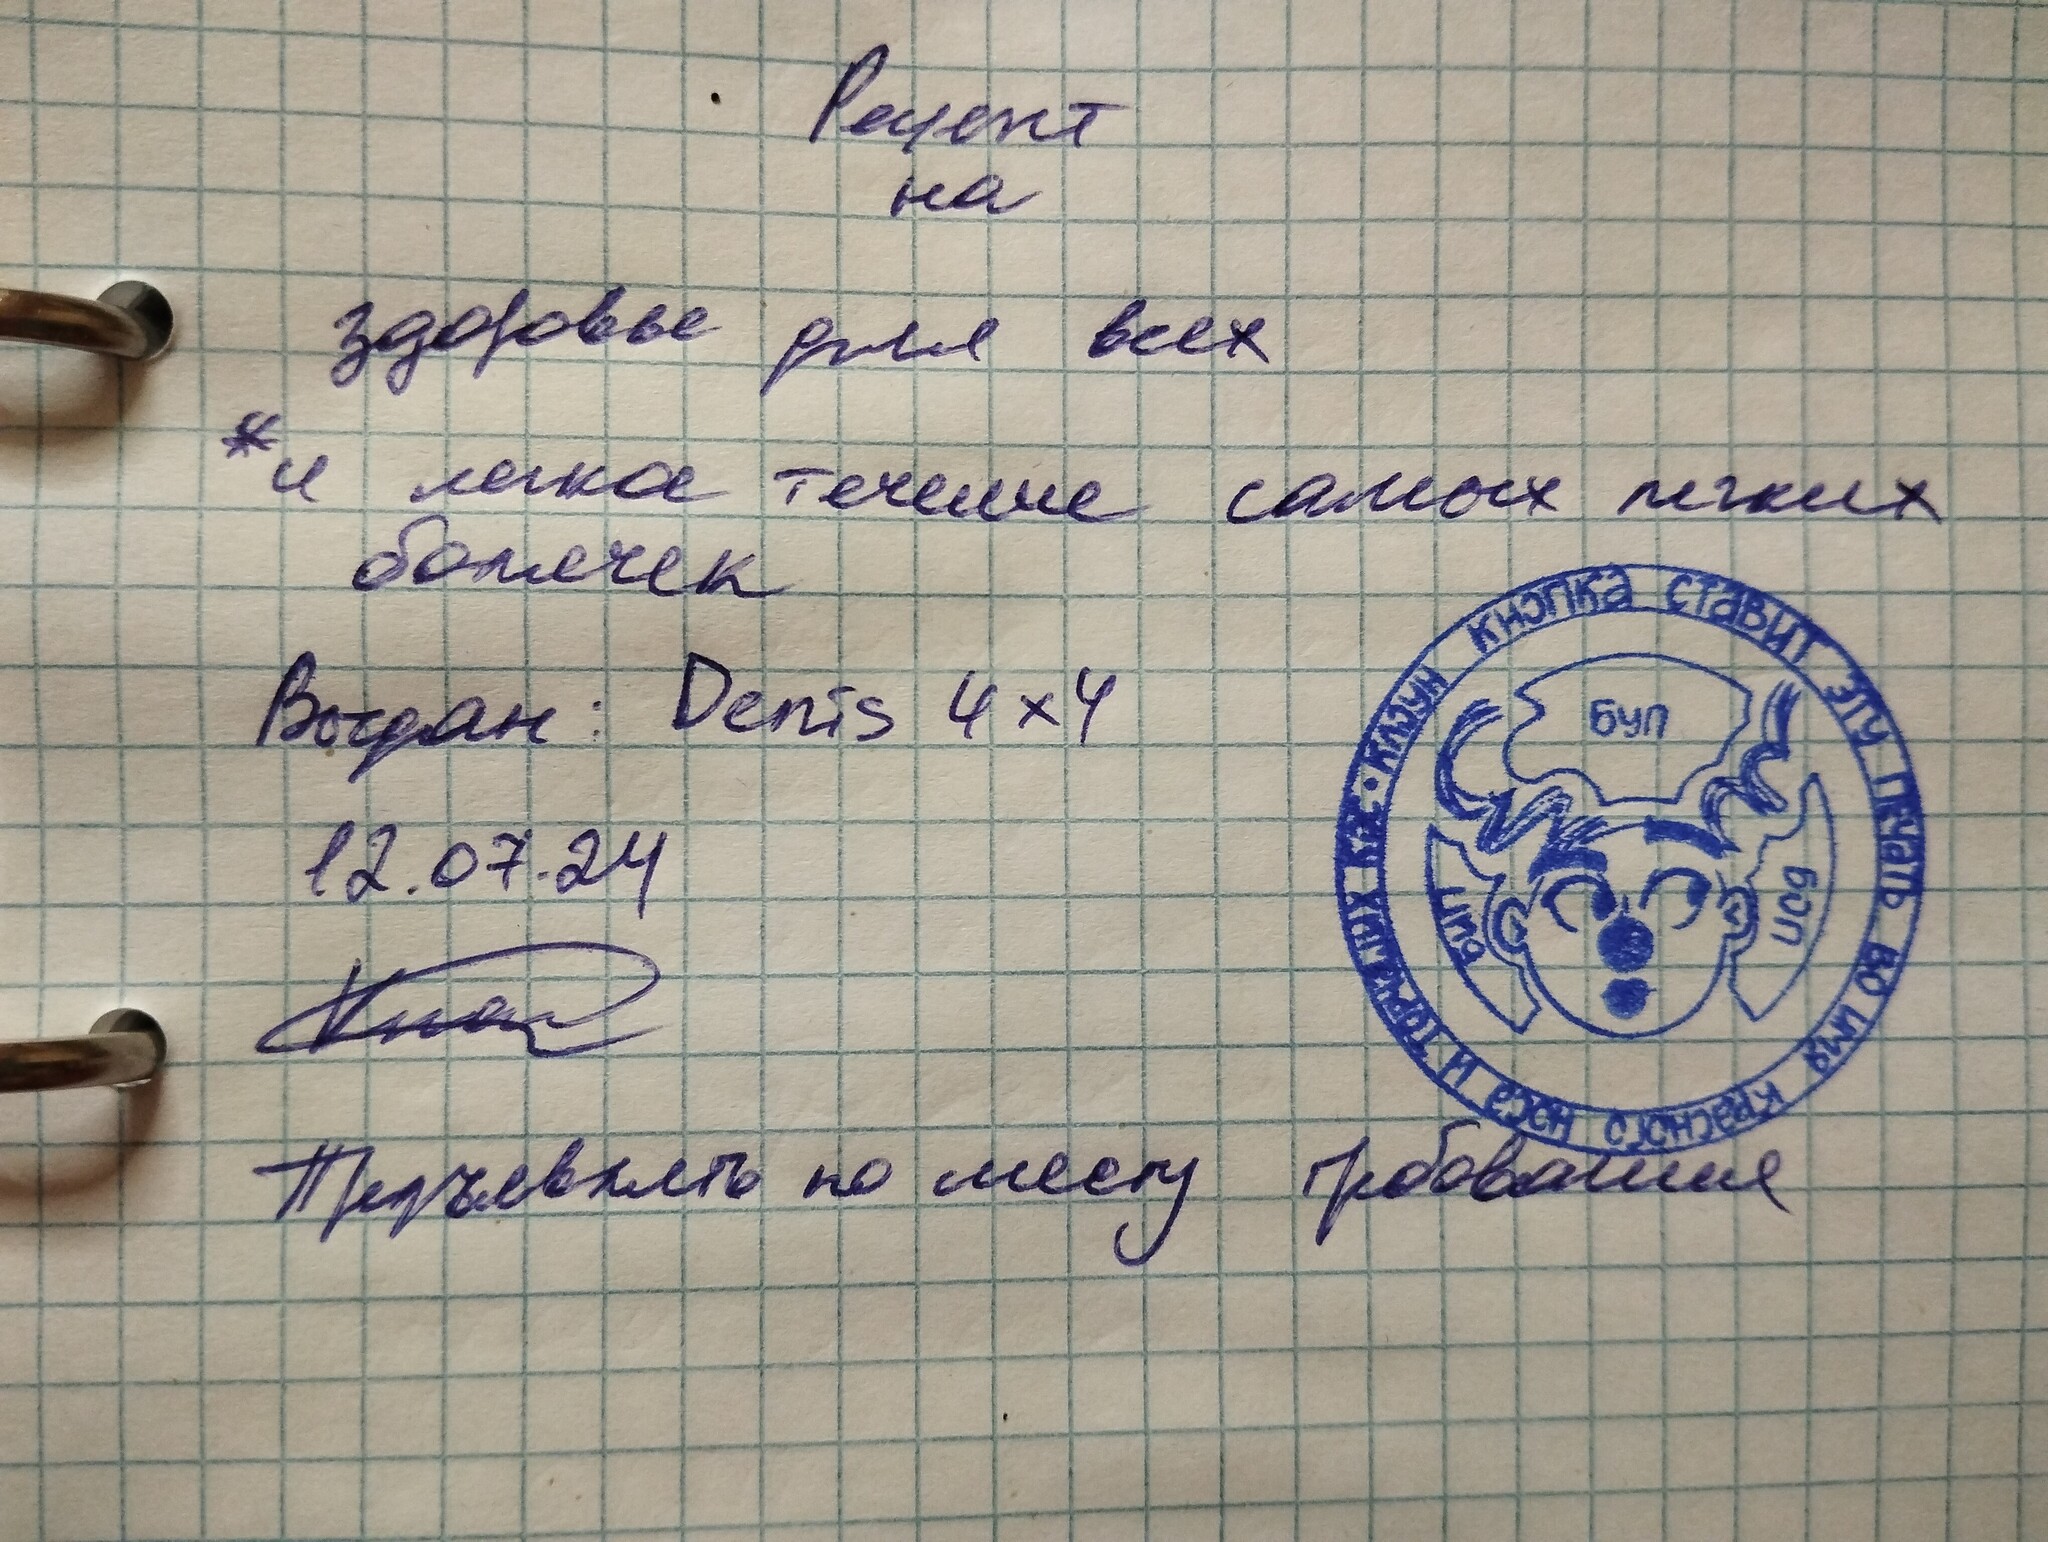 Рецепт
на
здоровье для всех
*и легкое течение самых легких
болячек
Выдан: Denis 4x4
12.07.24
Предъявлять по месту требования
КЛОУН КНОПКА СТАВИТ ЭТУ ПЕЧАТЬ ВО ИМЯ КРАСНОГО НОСА И ТОРЧАЩИХ КОС •
БУП
БИП
БОП